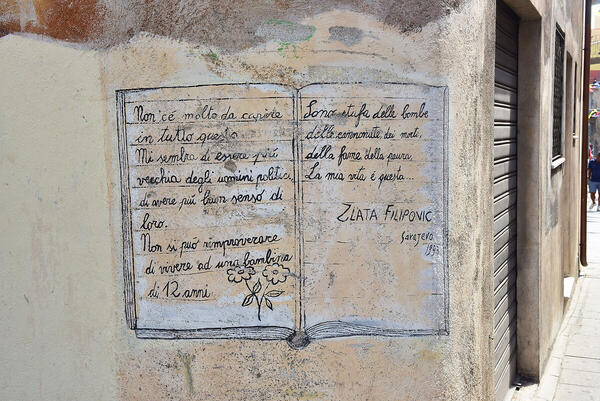 Non c'é molto da capire
in tutto questo
Mi sembra di essere piú
vecchia degli uomini politici
di avere piú buon senso di
loro.
Non si puó rimproverare
di vivere ad una bambina
di 12 anni
Sono stufa delle bombe
delle cannonate, dei morti,
della fame della paura.
La mia vita é questa...
ZLATA FILIPOVIC
Sarajevo